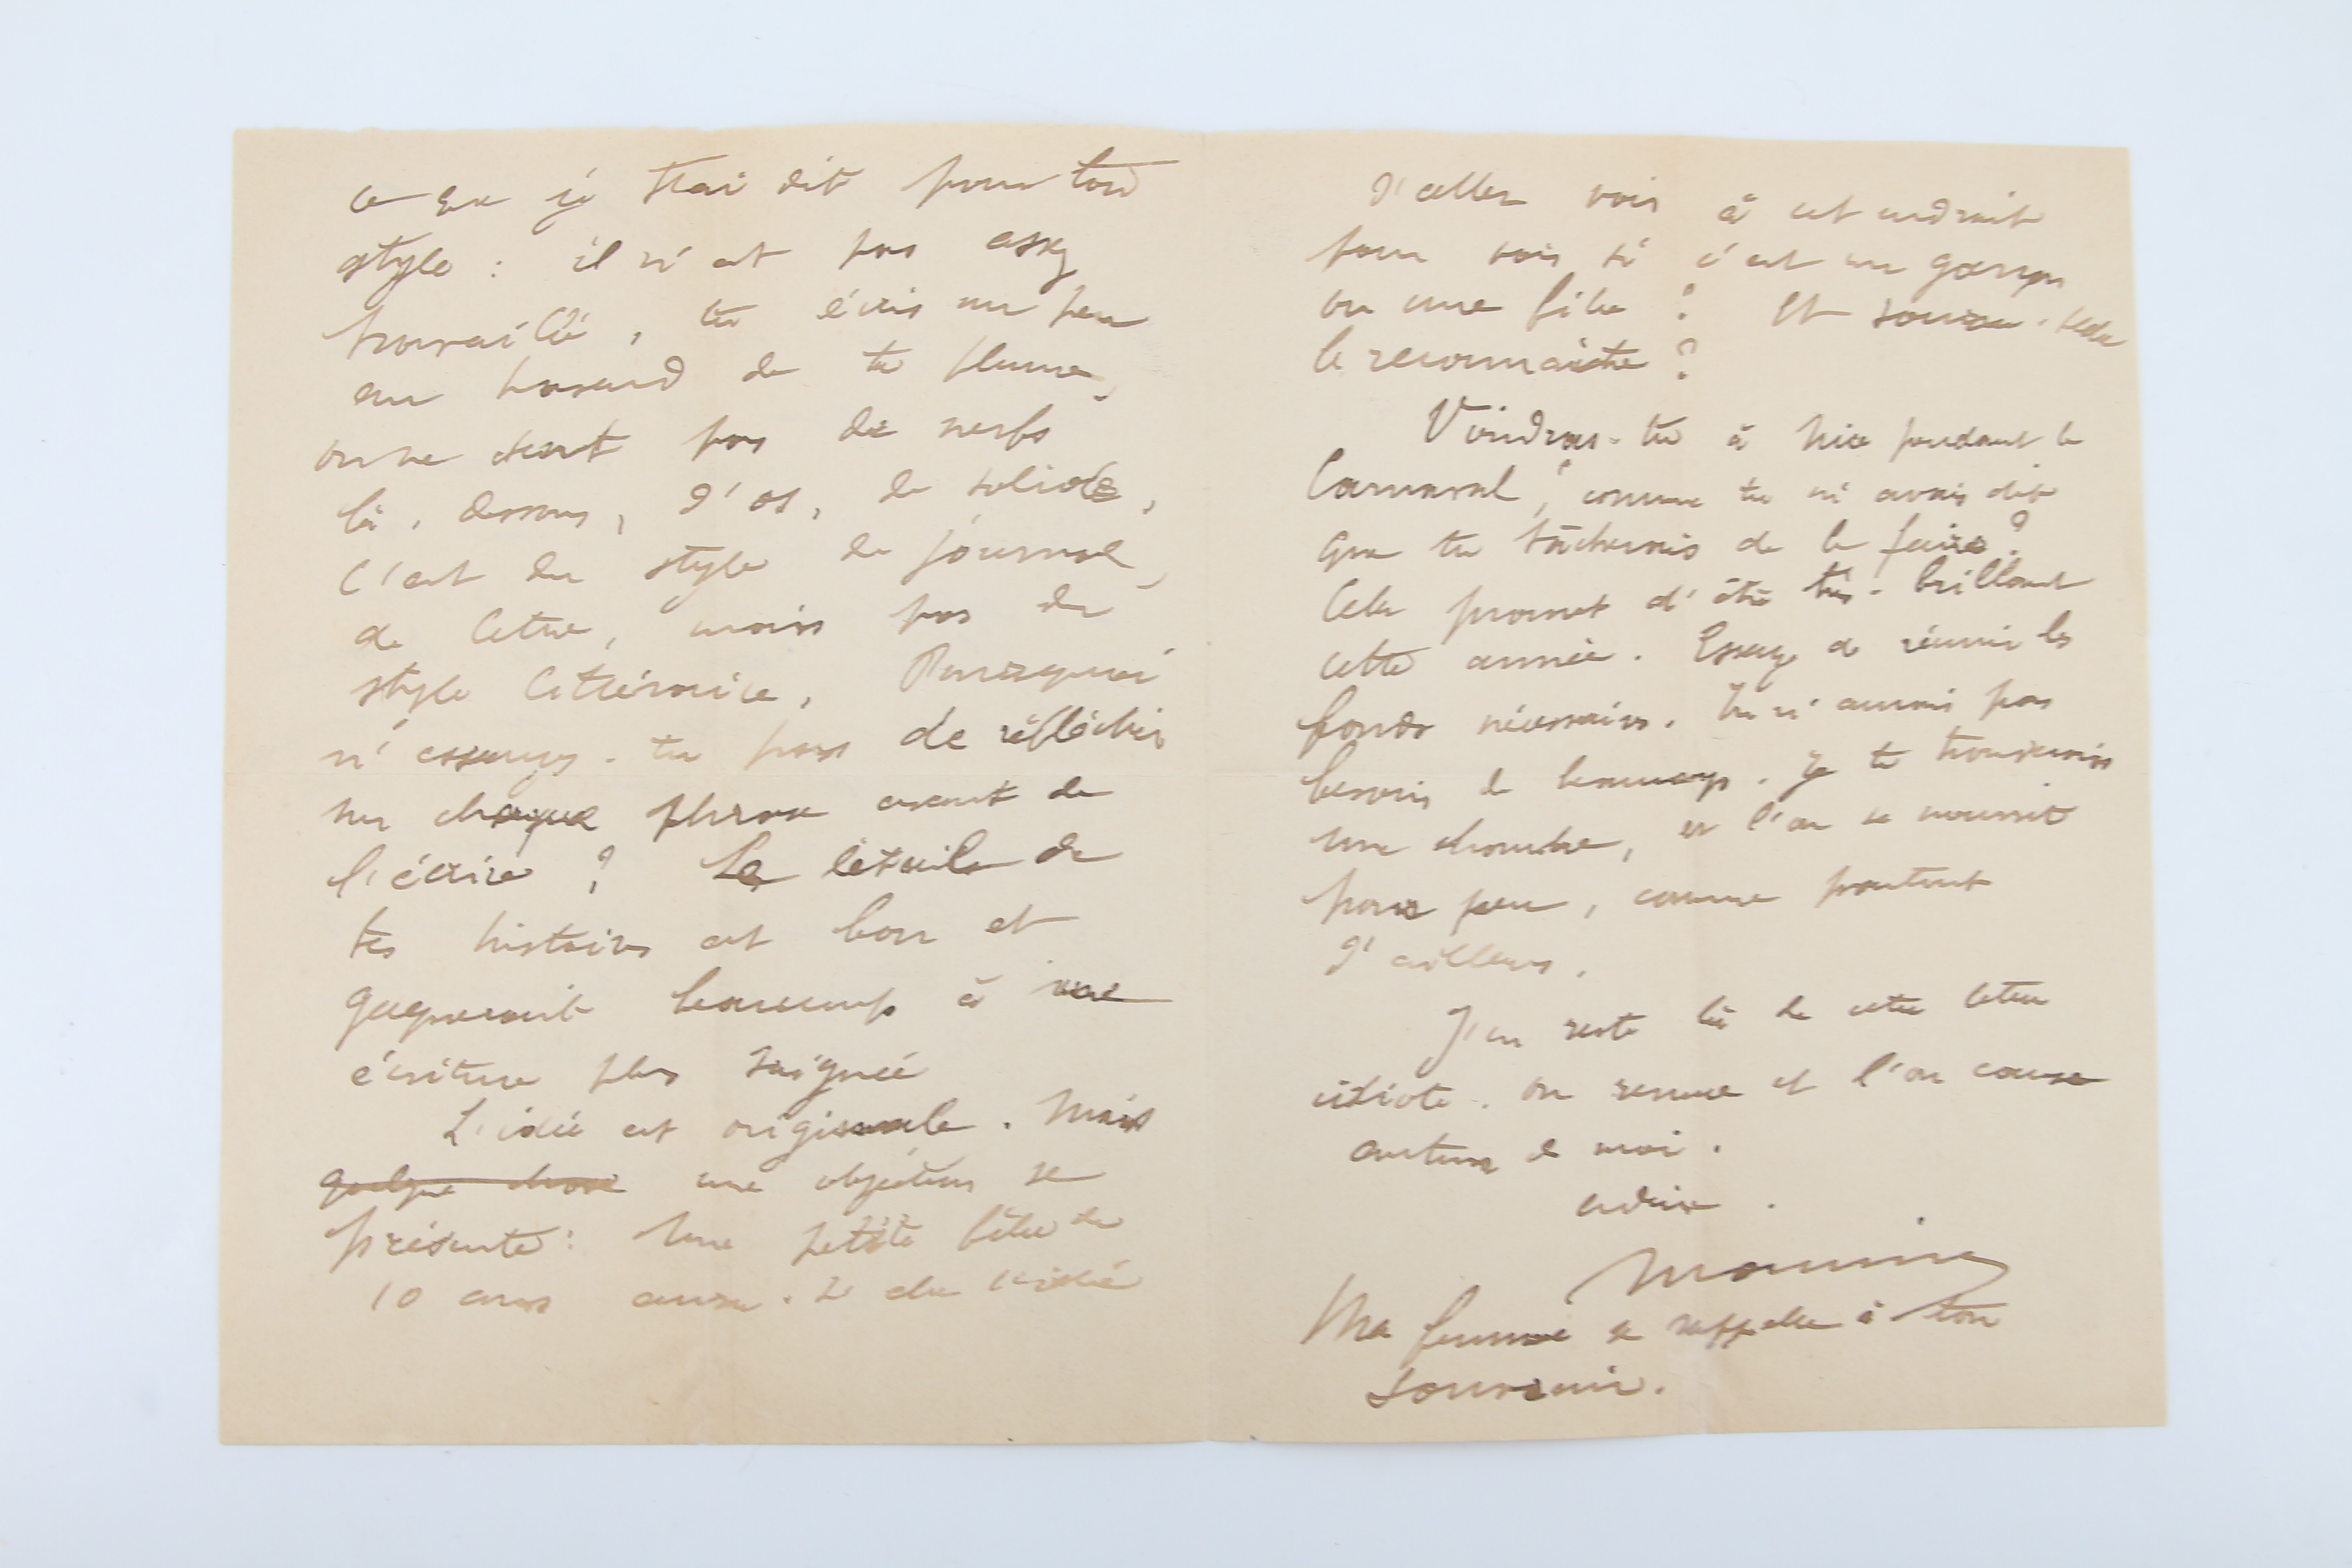 ce que je t'ai dit pour ton
style : il n'est pas assez
travaillé, tu écris un peu
au hasard de ta plume,
on ne sent pas de nerfs
là-dessous, d'os, de solide,
C'est du style de journal,
de lettre, mais pas du
style littéraire, Pourquoi
n'essayes-tu pas de réfléchir
sur chaque phrase avant de
l'écrire ? Le détail de
tes histoires est bon et
gagnerait beaucoup à une
écriture plus soignée
L'idée est originale. Mais
quelque chose une objection se
présente : Une petite fille de
10 ans aura-t-elle l'idée
d'aller voir à cet endroit
pour voir si c'est un garçon
ou une fille ? Et saura-t-elle
le reconnaître ?
Viendras-tu à Nice pendant le
Carnaval, comme tu m'avais dit
que tu tâcherais de le faire ?
Cela promet d'être très-brillant
cette année. Essaye de réunir les
fonds nécessaires. Tu n'aurais pas
besoin de beaucoup. Je te trouverais
une chambre, et l'on se nourrit
pour peu, comme partout
d'ailleurs.
J'en reste là de cette lettre
idiote. On remue et l'on cause
autour de moi.
adieu.
Ma femme se rappelle à ton
souvenir.